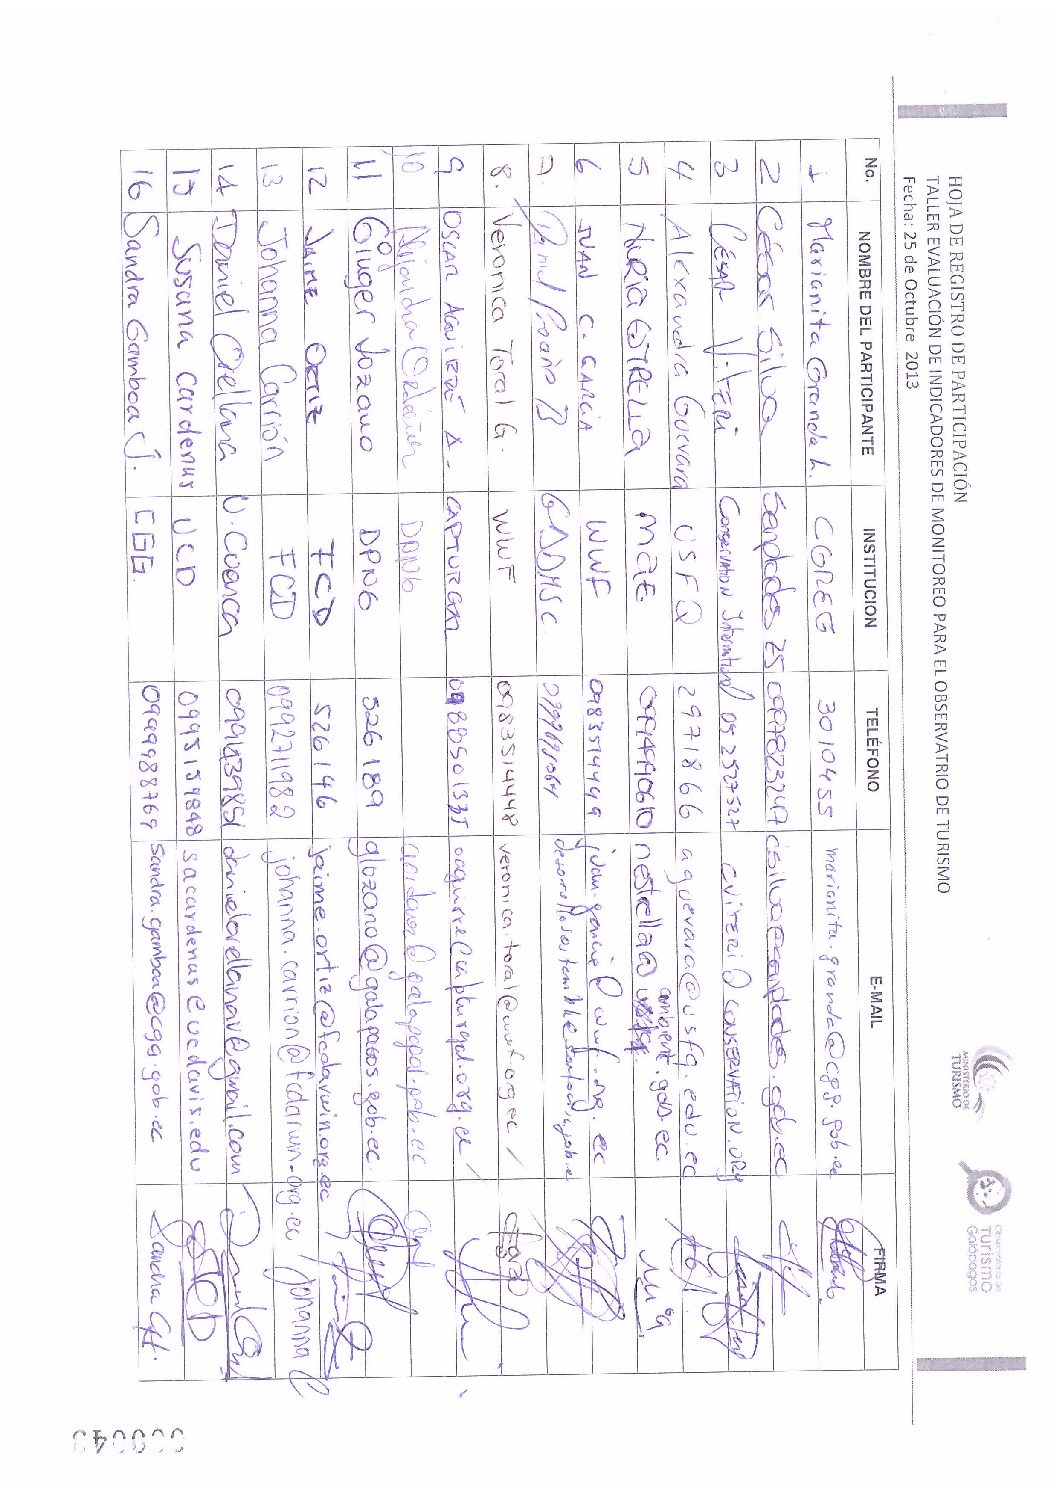 HOJA DE REGISTRO DE PARTICIPACIÓN
TALLER EVALUACIÓN DE INDICADORES DE MONITOREO PARA EL OBSERVATRIO DE TURISMO
Fecha: 25 de Octubre 2013
MINISTERIO DE TURISMO
Turismo Galápagos
No. NOMBRE DEL PARTICIPANTE INSTITUCION TELÉFONO E-MAIL FIRMA
1 Marianita Granda L. CGREG 3010455 marianita.granda@cgg.gob.ec
2 Silva 0997823247
3 César Viteri Conservation International 05 2527527 cviteri@conservation.org
4 Alexandra Guevara USFQ 2971866 aguevara@usfq.edu.ec
5 Nuria Estrella MAE 0994990610 nestrella@ambiente.gob.ec
6 Juan C. Garcia WWF 0983514449 juan.garcia@wwf.org.ec
7. GADMSC
8. Veronica Toral G. WWF 0983514448 veronica.toral@wwf.org.ec
9 Oscar Aguirre A. CAPTURGAL oaguirre@capturgal.org.ec
10 DPNG
11 Ginger Lozano DPNG 526189 glozano@galapagos.gob.ec
12 Jaime Ortiz FCD 526146 jaime.ortiz@fcdarwin.org.ec
13 Johanna Carrión FCD 0992711982 johanna.carrion@fcdarwin.org.ec Johanna C
14 Daniel Orellana U. Cuenca danielorellanav@gmail.com
15 Susana Cardenas UCD 0995159848 sacardenas@ucdavis.edu
16 Sandra Gamboa J. CGG. 0999988769 sandra.gamboa@cgg.gob.ec Sandra G.